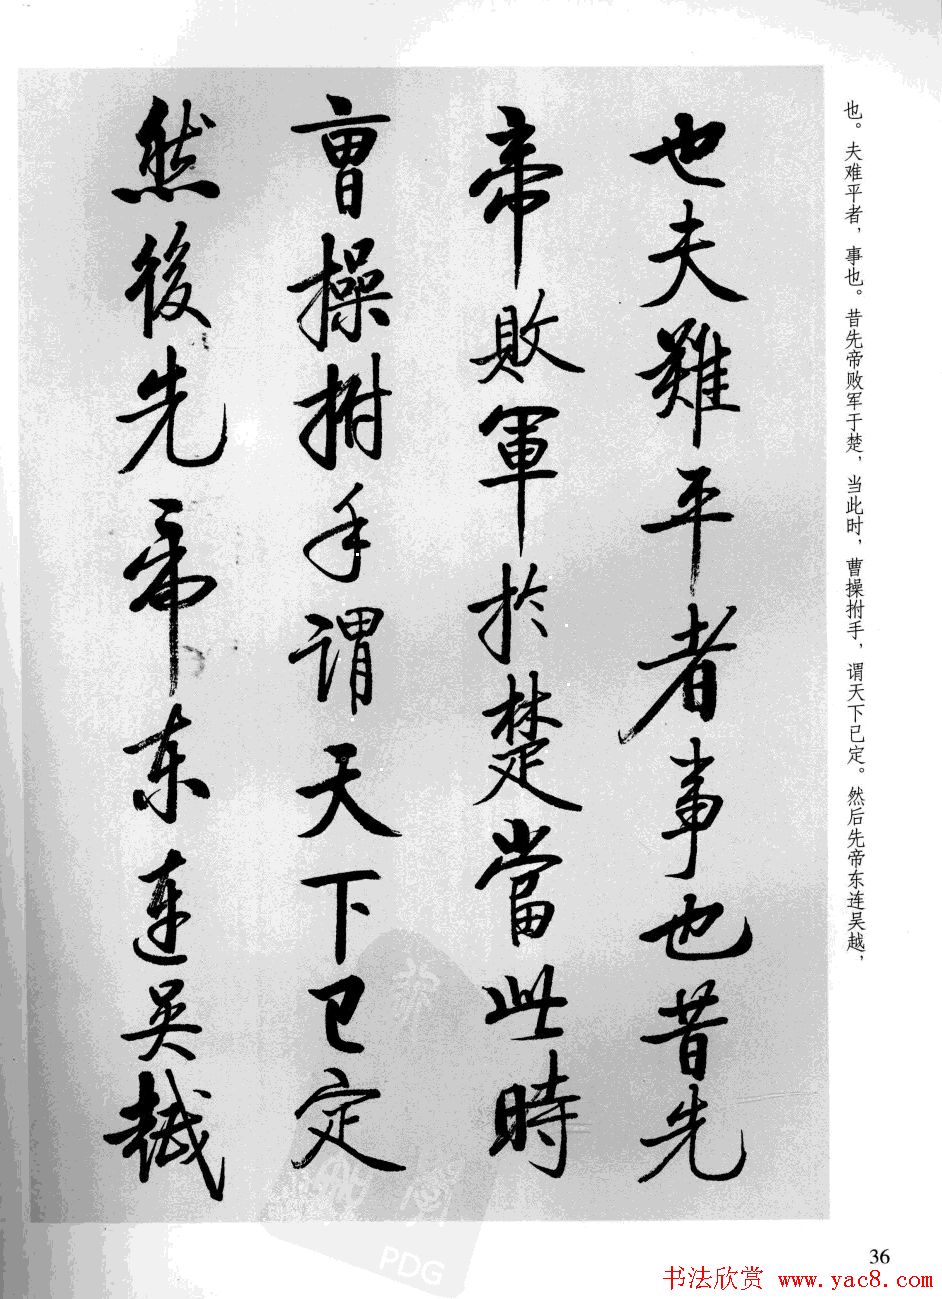 也。夫难平者，事也。昔先帝败军于楚，当此时，曹操拊手，谓天下已定。然后先帝东连吴越，
也夫難平者事也昔先
帝敗軍於楚當此時
曹操拊手谓天下已定
然後先帝东连吴越
36
书法欣赏 www.yac8.com
PDG